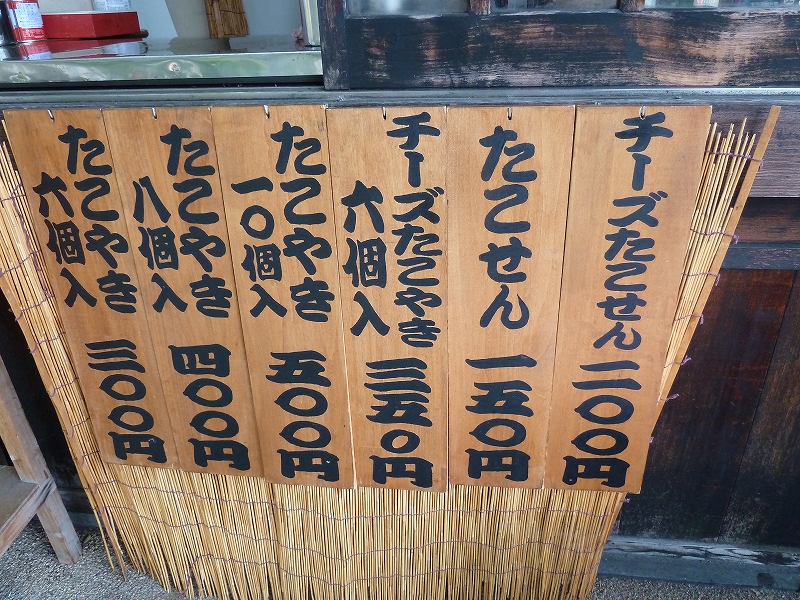 チーズたこせん 二〇〇円
たこせん 一五〇円
チーズたこやき
六個入
三五〇円
たこやき
一〇個入
五〇〇円
たこやき
八個入
四〇〇円
たこやき
六個入
三〇〇円